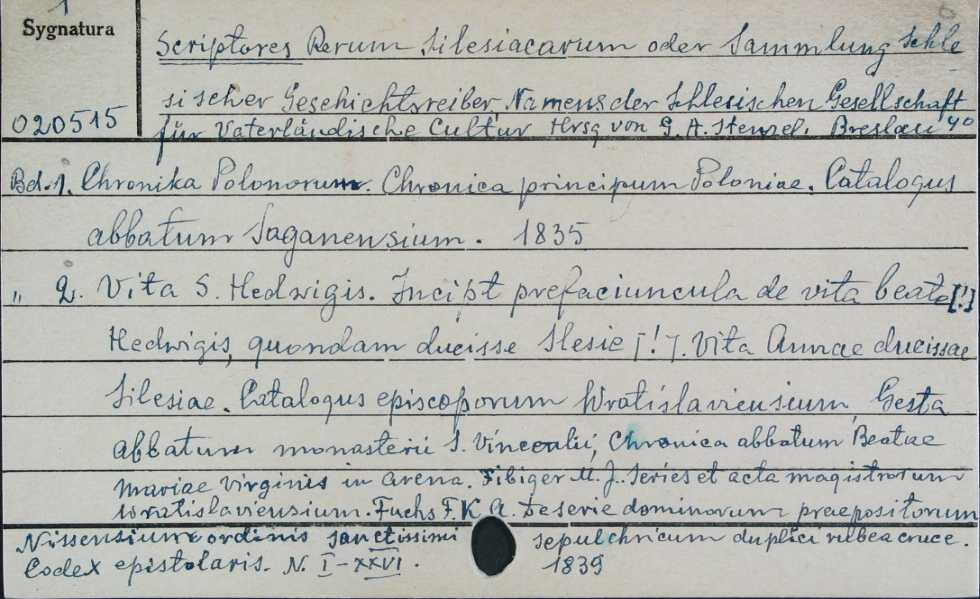 Sygnatura
020515
Scriptores Rerum Silesiacarum oder Sammlung Schle
sischer Geschichtsreiber Namens der Schlesischen Gesellschaft
für Vaterländische Cultur Hrsg von G. A. Stenzel. Breslau 4o
Bd. 1. Chronika Polonorum. Chronica principum Poloniae. Catalogus
abbatum Saganensium. 1835
" 2. Vita S. Hedwigis. Incipt prefaciuncula de vita beate [!]
Hedwigis, quondam ducisse Slesie [!]. Vita Annae ducissae
Silesiae. Catalogus episcoporum Wratislaviensium, Gesta
abbatum monasterii S. Vincentii, Chronica abbatum Beatae
Mariae Virginis in arena. Fibiger M. J. Series et acta magistrorum
Wratislaviensium. Fuchs F. K A. De serie dominorum praepositorum
Nissensium ordinis sanctissimi sepulchricum duplici rubea cruce.
Codex epistolaris. N. I-XXVI. 1839